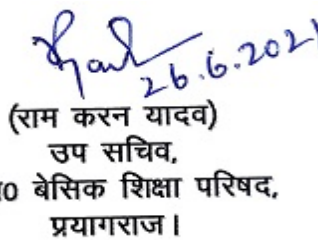 26.6.2021
(राम करन यादव)
उप सचिव,
0 बेसिक शिक्षा परिषद,
प्रयागराज।